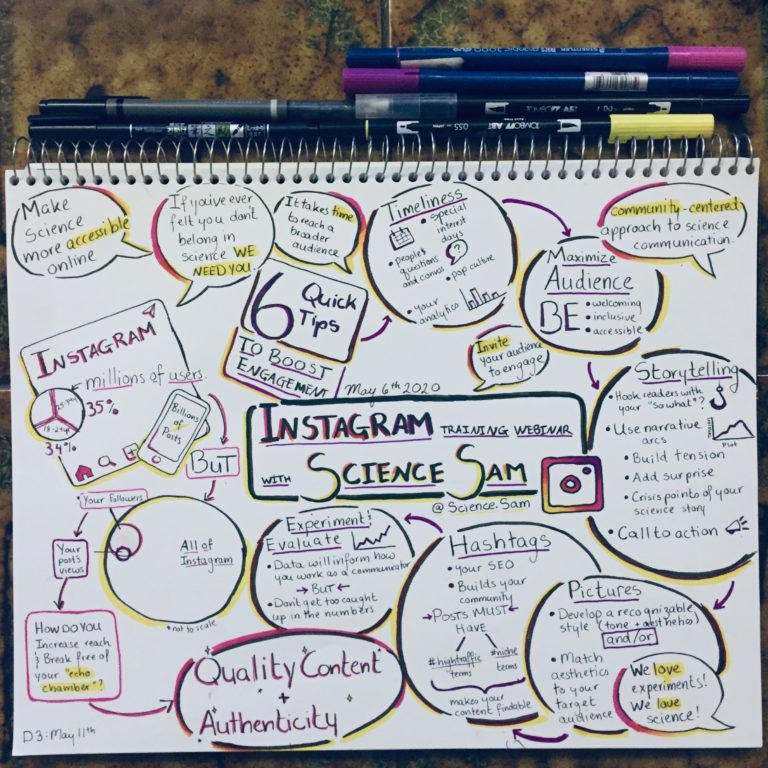 STAEDTLER
TOMBOW ABT
055 TOMBOW ABT
Make
Science
more accessible
online
If you've ever
felt you don't
belong in
science WE
NEED YOU
It takes time
to reach a
broader
audience
Timeliness
• special
interest
days
• people's
questions
and convos
?
• pop culture
• your
analytics
Community-centered
approach to science
communication.
Maximize
Audience
BE
• welcoming
• inclusive
• accessible
6 Quick
Tips
TO BOOST
ENGAGEMENT
Invite
your audience
to engage
May 6th 2020
INSTAGRAM TRAINING WEBINAR
WITH SCIENCE SAM
@Science.Sam
INSTAGRAM
millions of users
35%
18-24yr
34%
Billions
of
Posts
BUT
Your Followers
Your
post's
views
All of
Instagram
*not to scale
HOW DO YOU
Increase reach
& Break free of
your "echo
chamber"?
Storytelling
• Hook readers with
your "so what"?
• Use narrative
arcs
• Build tension
• Add surprise
• Crisis points of your
science story
• Call to action
Tension
Plot
Pictures
• Develop a recognizable
style (tone + aesthetics)
and/or
• Match
aesthetics
to your
target
audience
We love
experiments!
We love
science!
Hashtags
• your SEO
• Builds your
community
POSTS MUST
HAVE
#hightraffic
terms
#niche
terms
makes your
content findable
Experiment!
Evaluate
• Data will inform how
you work as a communicator
BUT
• Don't get too caught
up in the numbers
Quality Content
+
Authenticity
D3: May 11th